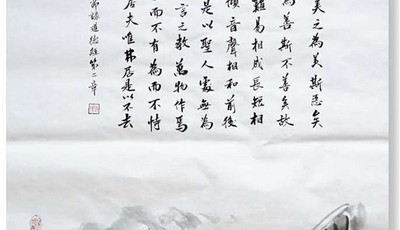 美之為美斯惡矣
為善斯不善矣故
難易相成長短相
傾音聲相和前後
是以聖人處無為
言之教萬物作焉
而不有為而不恃
居夫唯弗居是以不去
節錄道德經第二章